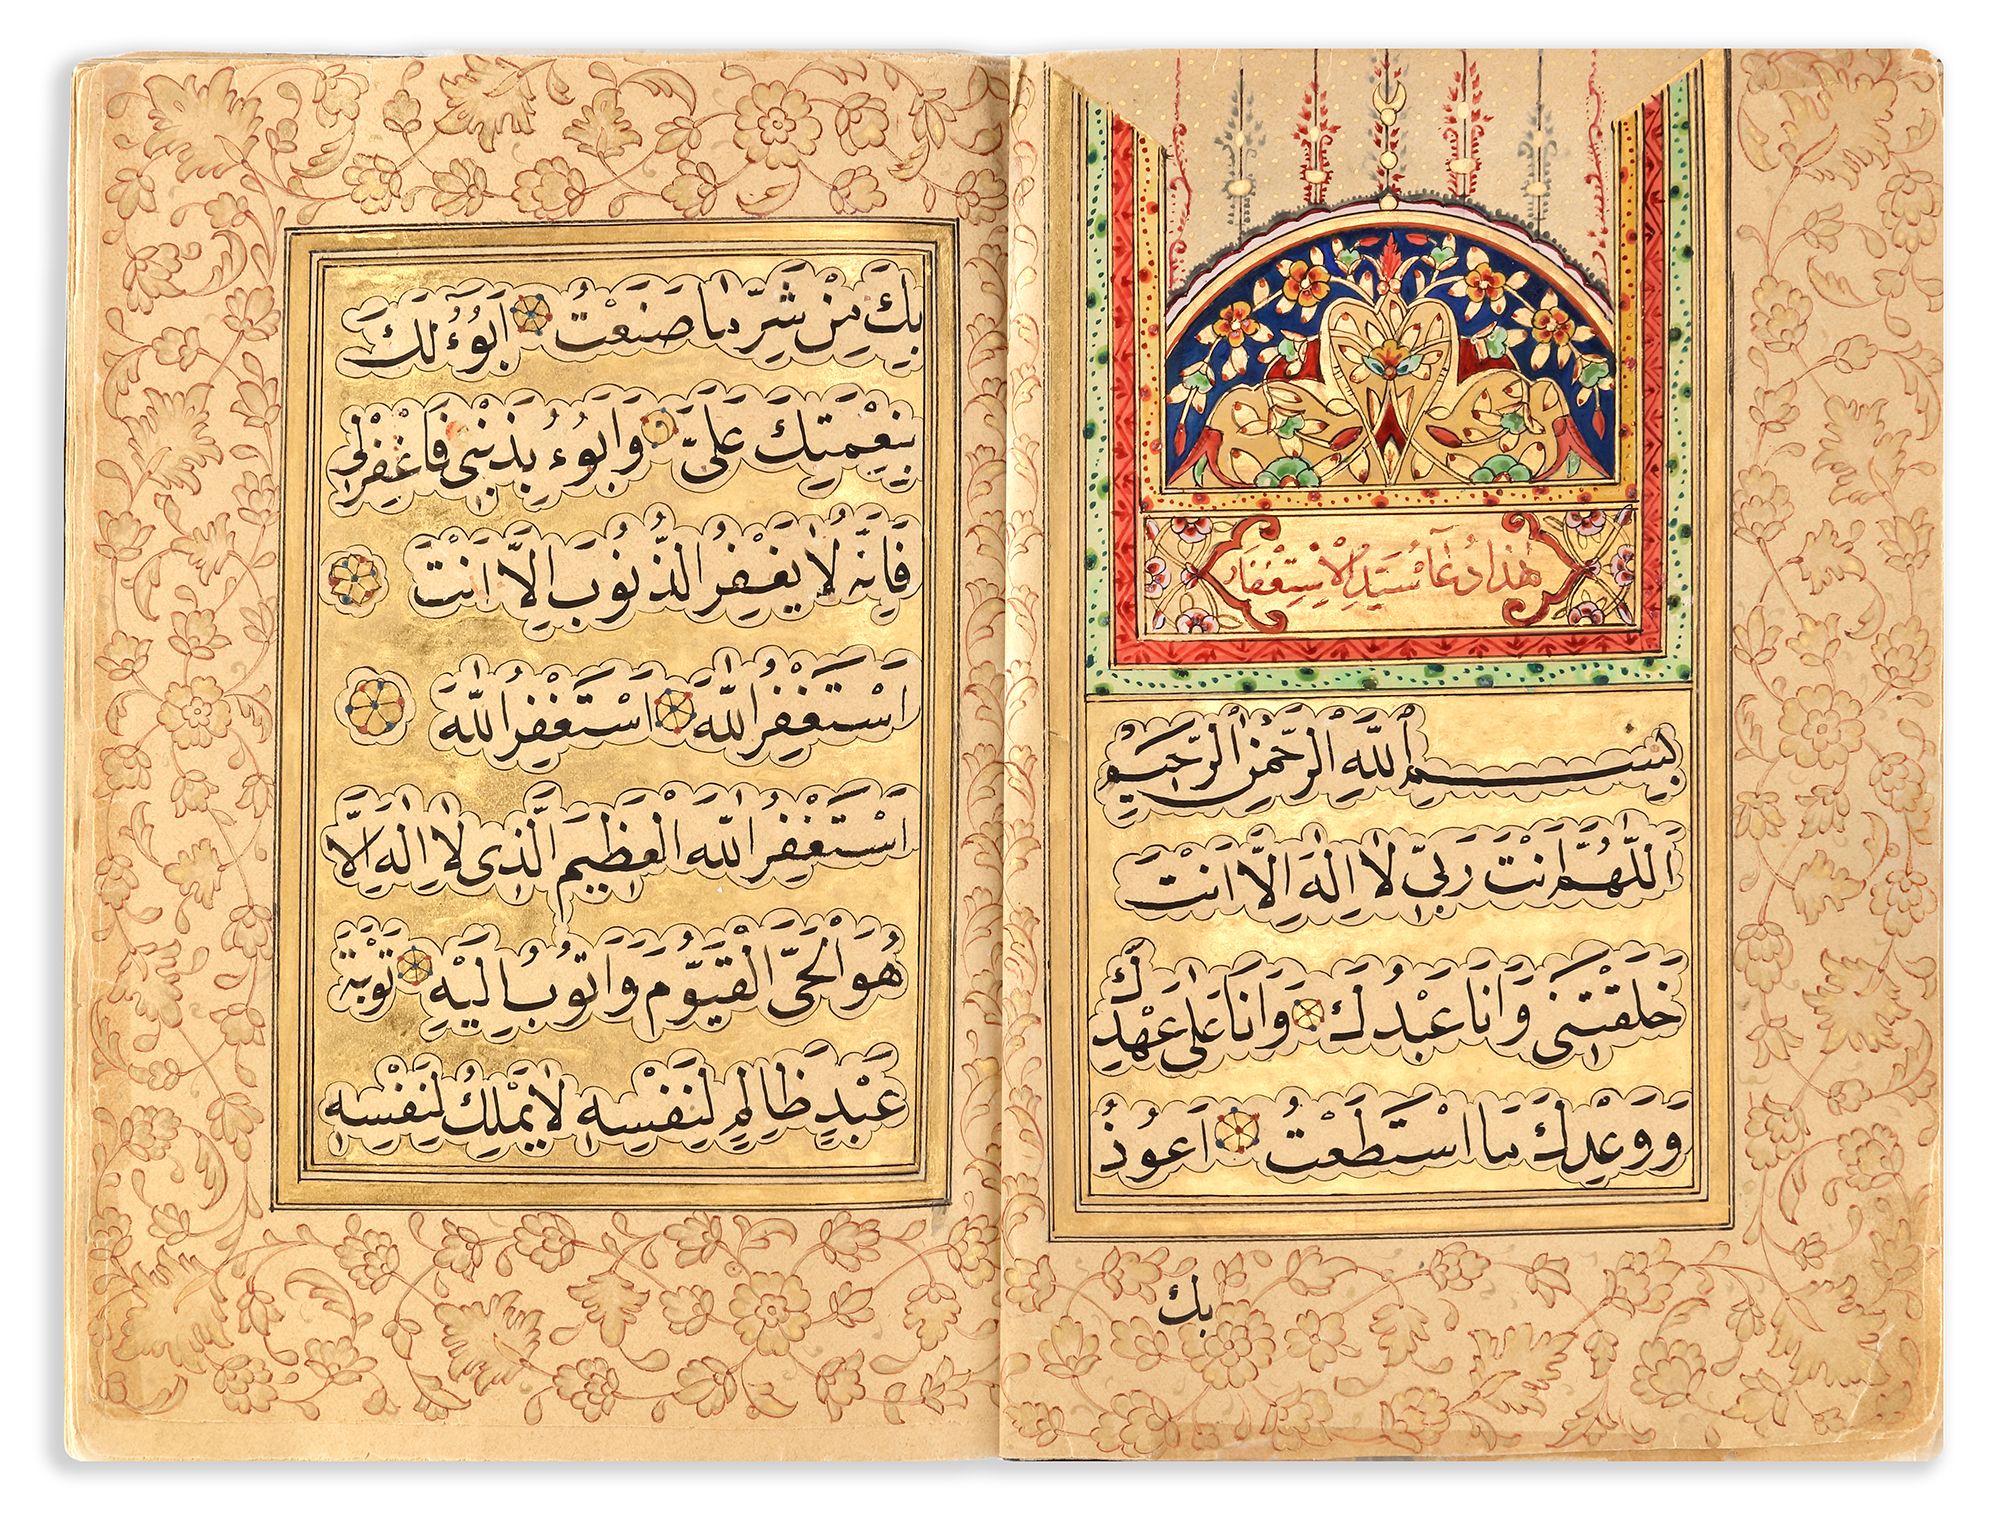 هٰذَا دُعَآءُ سَيِّدُ الْاِسْتِغْفَارْ
بِسْمِ اللّٰهِ الرَّحْمٰنِ الرَّحِيمِ
اَللّٰهُمَّ اَنْتَ رَبِّى لَا اِلٰهَ اِلَّا اَنْتَ
خَلَقْتَنِى وَاَنَا عَبْدُكَ وَاَنَا عَلٰى عَهْدِكَ
وَوَعْدِكَ مَا اسْتَطَعْتُ اَعُوذُ
بك
بِكَ مِنْ شَرِّ مَا صَنَعْتُ اَبُوُٓءُ لَكَ
بِنِعْمَتِكَ عَلَىَّ وَاَبُوُءُ بِذَنْبِى فَاغْفِرْلِى
فَاِنَّهُ لَا يَغْفِرُ الذُّنُوبَ اِلَّا اَنْتَ
اَسْتَغْفِرُ اللّٰهَ اَسْتَغْفِرُ اللّٰهَ
اَسْتَغْفِرُ اللّٰهَ الْعَظِيمَ الَّذِى لَا اِلٰهَ اِلَّا
هُوَ الْحَىَّ الْقَيُّومَ وَاَتُوبُ اِلَيْهِ تَوْبَةَ
عَبْدٍ ظَالِمٍ لِنَفْسِهِ لَا يَمْلِكُ لِنَفْسِهِ